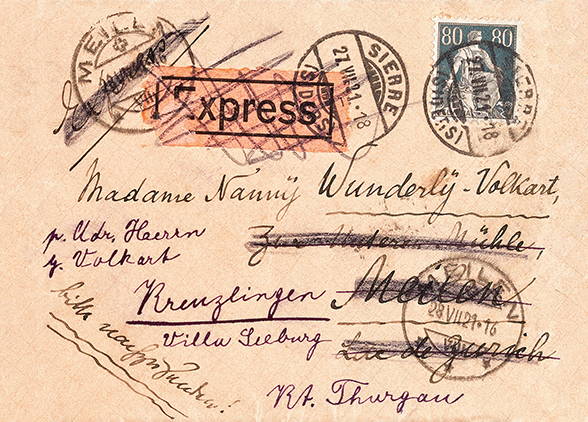 MEILEN
Express
SIERRE
27.VII.21.-18
(SIDERS)
80 80
SIERRE
27.VII.21.-18
(SIDERS)
Madame Nanny Wunderly-Volkart,
p. Adr. Herrn
g. Volkart
Zur Unteren Mühle,
Kreuzlingen
Meilen
MEILEN
28.VII.21.-16
Villa Seeburg
Lac de Zurich
bitte nachsenden!
Kt. Thurgau